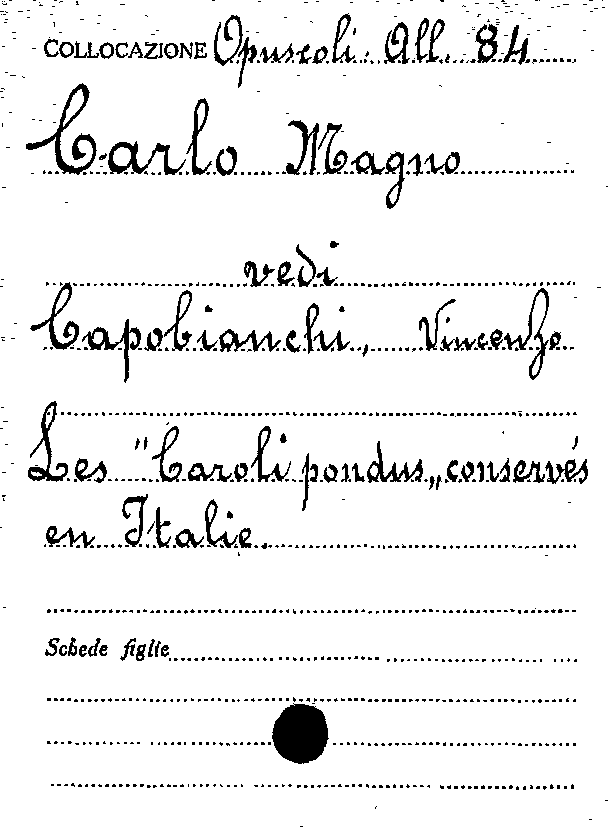 COLLOCAZIONE Opuscoli. All. 84
Carlo Magno
vedi
Capobianchi, Vincenzo
Les "Caroli pondus„ conservés
en Italie.
Schede figlie